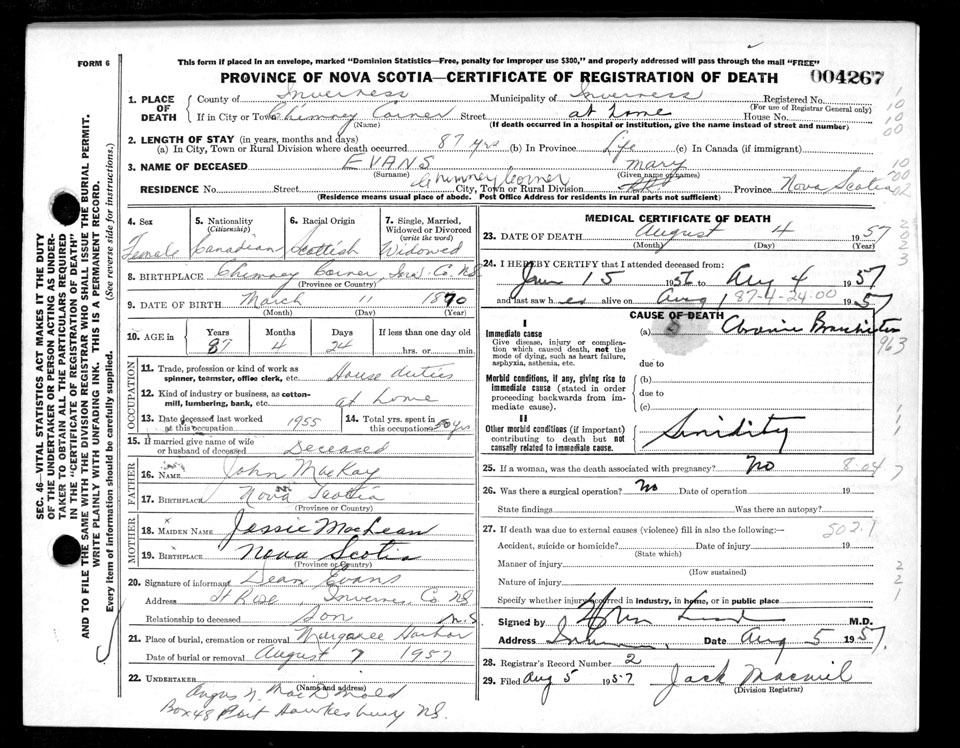 FORM 6
This form if placed in an envelope, marked "Dominion Statistics—Free, penalty for improper use $300," and properly addressed will pass through the mail "FREE"
PROVINCE OF NOVA SCOTIA—CERTIFICATE OF REGISTRATION OF DEATH 004267
SEC. 46—VITAL STATISTICS ACT MAKES IT THE DUTY
OF THE UNDERTAKER OR PERSON ACTING AS UNDER-
TAKER TO OBTAIN ALL THE PARTICULARS REQUIRED
IN THE "CERTIFICATE OF REGISTRATION OF DEATH"
AND TO FILE THE SAME WITH THE DIVISION REGISTRAR WHO SHALL ISSUE THE BURIAL PERMIT.
WRITE PLAINLY WITH UNFADING INK. THIS IS A PERMANENT RECORD.
Every item of information should be carefully supplied. (See reverse side for instructions.)
1. PLACE OF DEATH County of Inverness Municipality of Inverness Registered No.
(For use of Registrar General only)
If in City or Town Chimney Corner Street at home House No.
(Name) (If death occurred in a hospital or institution, give the name instead of street and number)
2. LENGTH OF STAY (in years, months and days)
(a) In City, Town or Rural Division where death occurred 87 yrs (b) In Province Life (c) In Canada (if immigrant)
3. NAME OF DECEASED EVANS Mary
(Surname) (Given name or names)
RESIDENCE No. Street Chimney Corner City, Town or Rural Division Province Nova Scotia
(Residence means usual place of abode. Post Office Address for residents in rural parts not sufficient)
4. Sex Female
5. Nationality (Citizenship) Canadian
6. Racial Origin Scottish
7. Single, Married, Widowed or Divorced (write the word) Widowed
8. BIRTHPLACE Chimney Corner, Inv. Co. NS
(Province or Country)
9. DATE OF BIRTH March 11 1870
(Month) (Day) (Year)
10. AGE in Years 87 Months 4 Days 24 If less than one day old hrs. or min.
OCCUPATION
11. Trade, profession or kind of work as spinner, teamster, office clerk, etc. House duties
12. Kind of industry or business, as cotton-mill, lumbering, bank, etc. at home
13. Date deceased last worked at this occupation 1955
14. Total yrs. spent in this occupation 50 yrs
15. If married give name of wife or husband of deceased Deceased
FATHER
16. Name John MacKay
17. Birthplace Nova Scotia
(Province or Country)
MOTHER
18. Maiden Name Jessie MacLean
19. Birthplace Nova Scotia
(Province or Country)
20. Signature of informant Dean Evans
Address St Rose, Inverness Co NS
Relationship to deceased Son N.S
21. Place of burial, cremation or removal Margaree Harbor
Date of burial or removal August 7 1957
22. UNDERTAKER Angus N. MacDonald
(Name and address)
Box 48 Port Hawkesbury NS.
MEDICAL CERTIFICATE OF DEATH
23. DATE OF DEATH August 4 1957
(Month) (Day) (Year)
24. I HEREBY CERTIFY that I attended deceased from:
Jan 15 1956 to Aug 4 1957
and last saw her alive on Aug 1 87-4-24-00 1957
CAUSE OF DEATH
I
Immediate cause (a) Chronic Bronchitis
Give disease, injury or complication which caused death, not the mode of dying, such as heart failure, asphyxia, asthenia, etc.
963
due to
Morbid conditions, if any, giving rise to immediate cause (stated in order proceeding backwards from immediate cause).
(b)
due to
(c)
II
Other morbid conditions (if important) contributing to death but not causally related to immediate cause.
Sinidity
25. If a woman, was the death associated with pregnancy? No 8-04
26. Was there a surgical operation? No Date of operation 19
State findings Was there an autopsy?
27. If death was due to external causes (violence) fill in also the following:— 502.1
Accident, suicide or homicide? Date of injury 19
(State which)
Manner of injury
(How sustained)
Nature of injury
Specify whether injury occurred in industry, in home, or in public place
Signed by M.D.
Address Date Aug 5 1957
28. Registrar's Record Number 2
29. Filed Aug 5 1957 Jack Macneil
(Division Registrar)